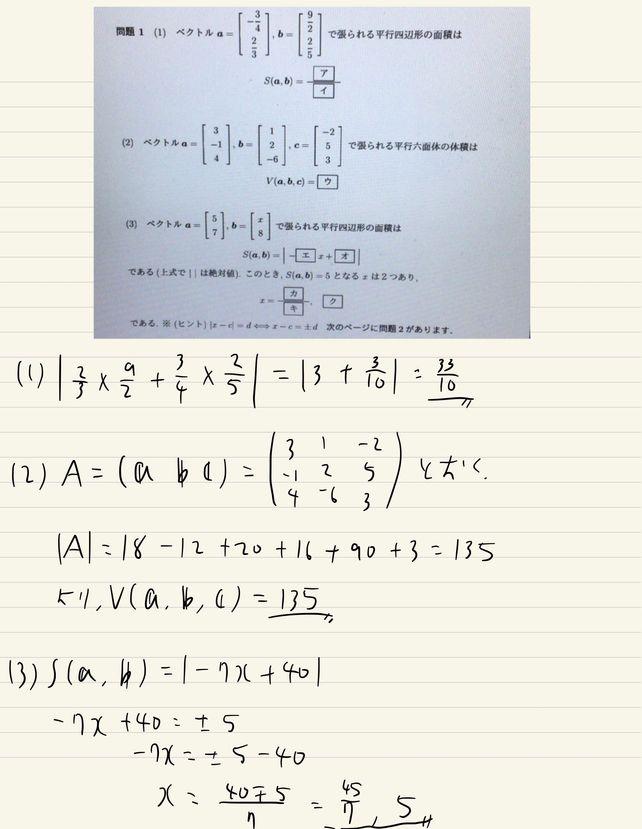 問題 1 (1) ベクトル a = [-3/4, 2/3], b = [9/2, 2/5] で張られる平行四辺形の面積は
S(a, b) = ア/イ
(2) ベクトル a = [3, -1, 4], b = [1, 2, -6], c = [-2, 5, 3] で張られる平行六面体の体積は
V(a, b, c) = ウ
(3) ベクトル a = [5, 7], b = [x, 8] で張られる平行四辺形の面積は
S(a, b) = | - エ x + オ |
である (上式で | | は絶対値). このとき, S(a, b) = 5 となる x は 2 つあり,
x = カ/キ, ク
である. ※ (ヒント) |x − c| = d ⟺ x − c = ±d 次のページに問題 2 があります.
(1) | 2/3 × 9/2 + 3/4 × 2/5 | = | 3 + 3/10 | = 33/10
(2) A = (a b c) = (3 1 -2, -1 2 5, 4 -6 3) とおく.
|A| = 18 - 12 + 20 + 16 + 90 + 3 = 135
より, V(a, b, c) = 135
(3) S(a, b) = | -7x + 40 |
-7x + 40 = ± 5
-7x = ± 5 - 40
x = (40 ∓ 5)/7 = 45/7, 5